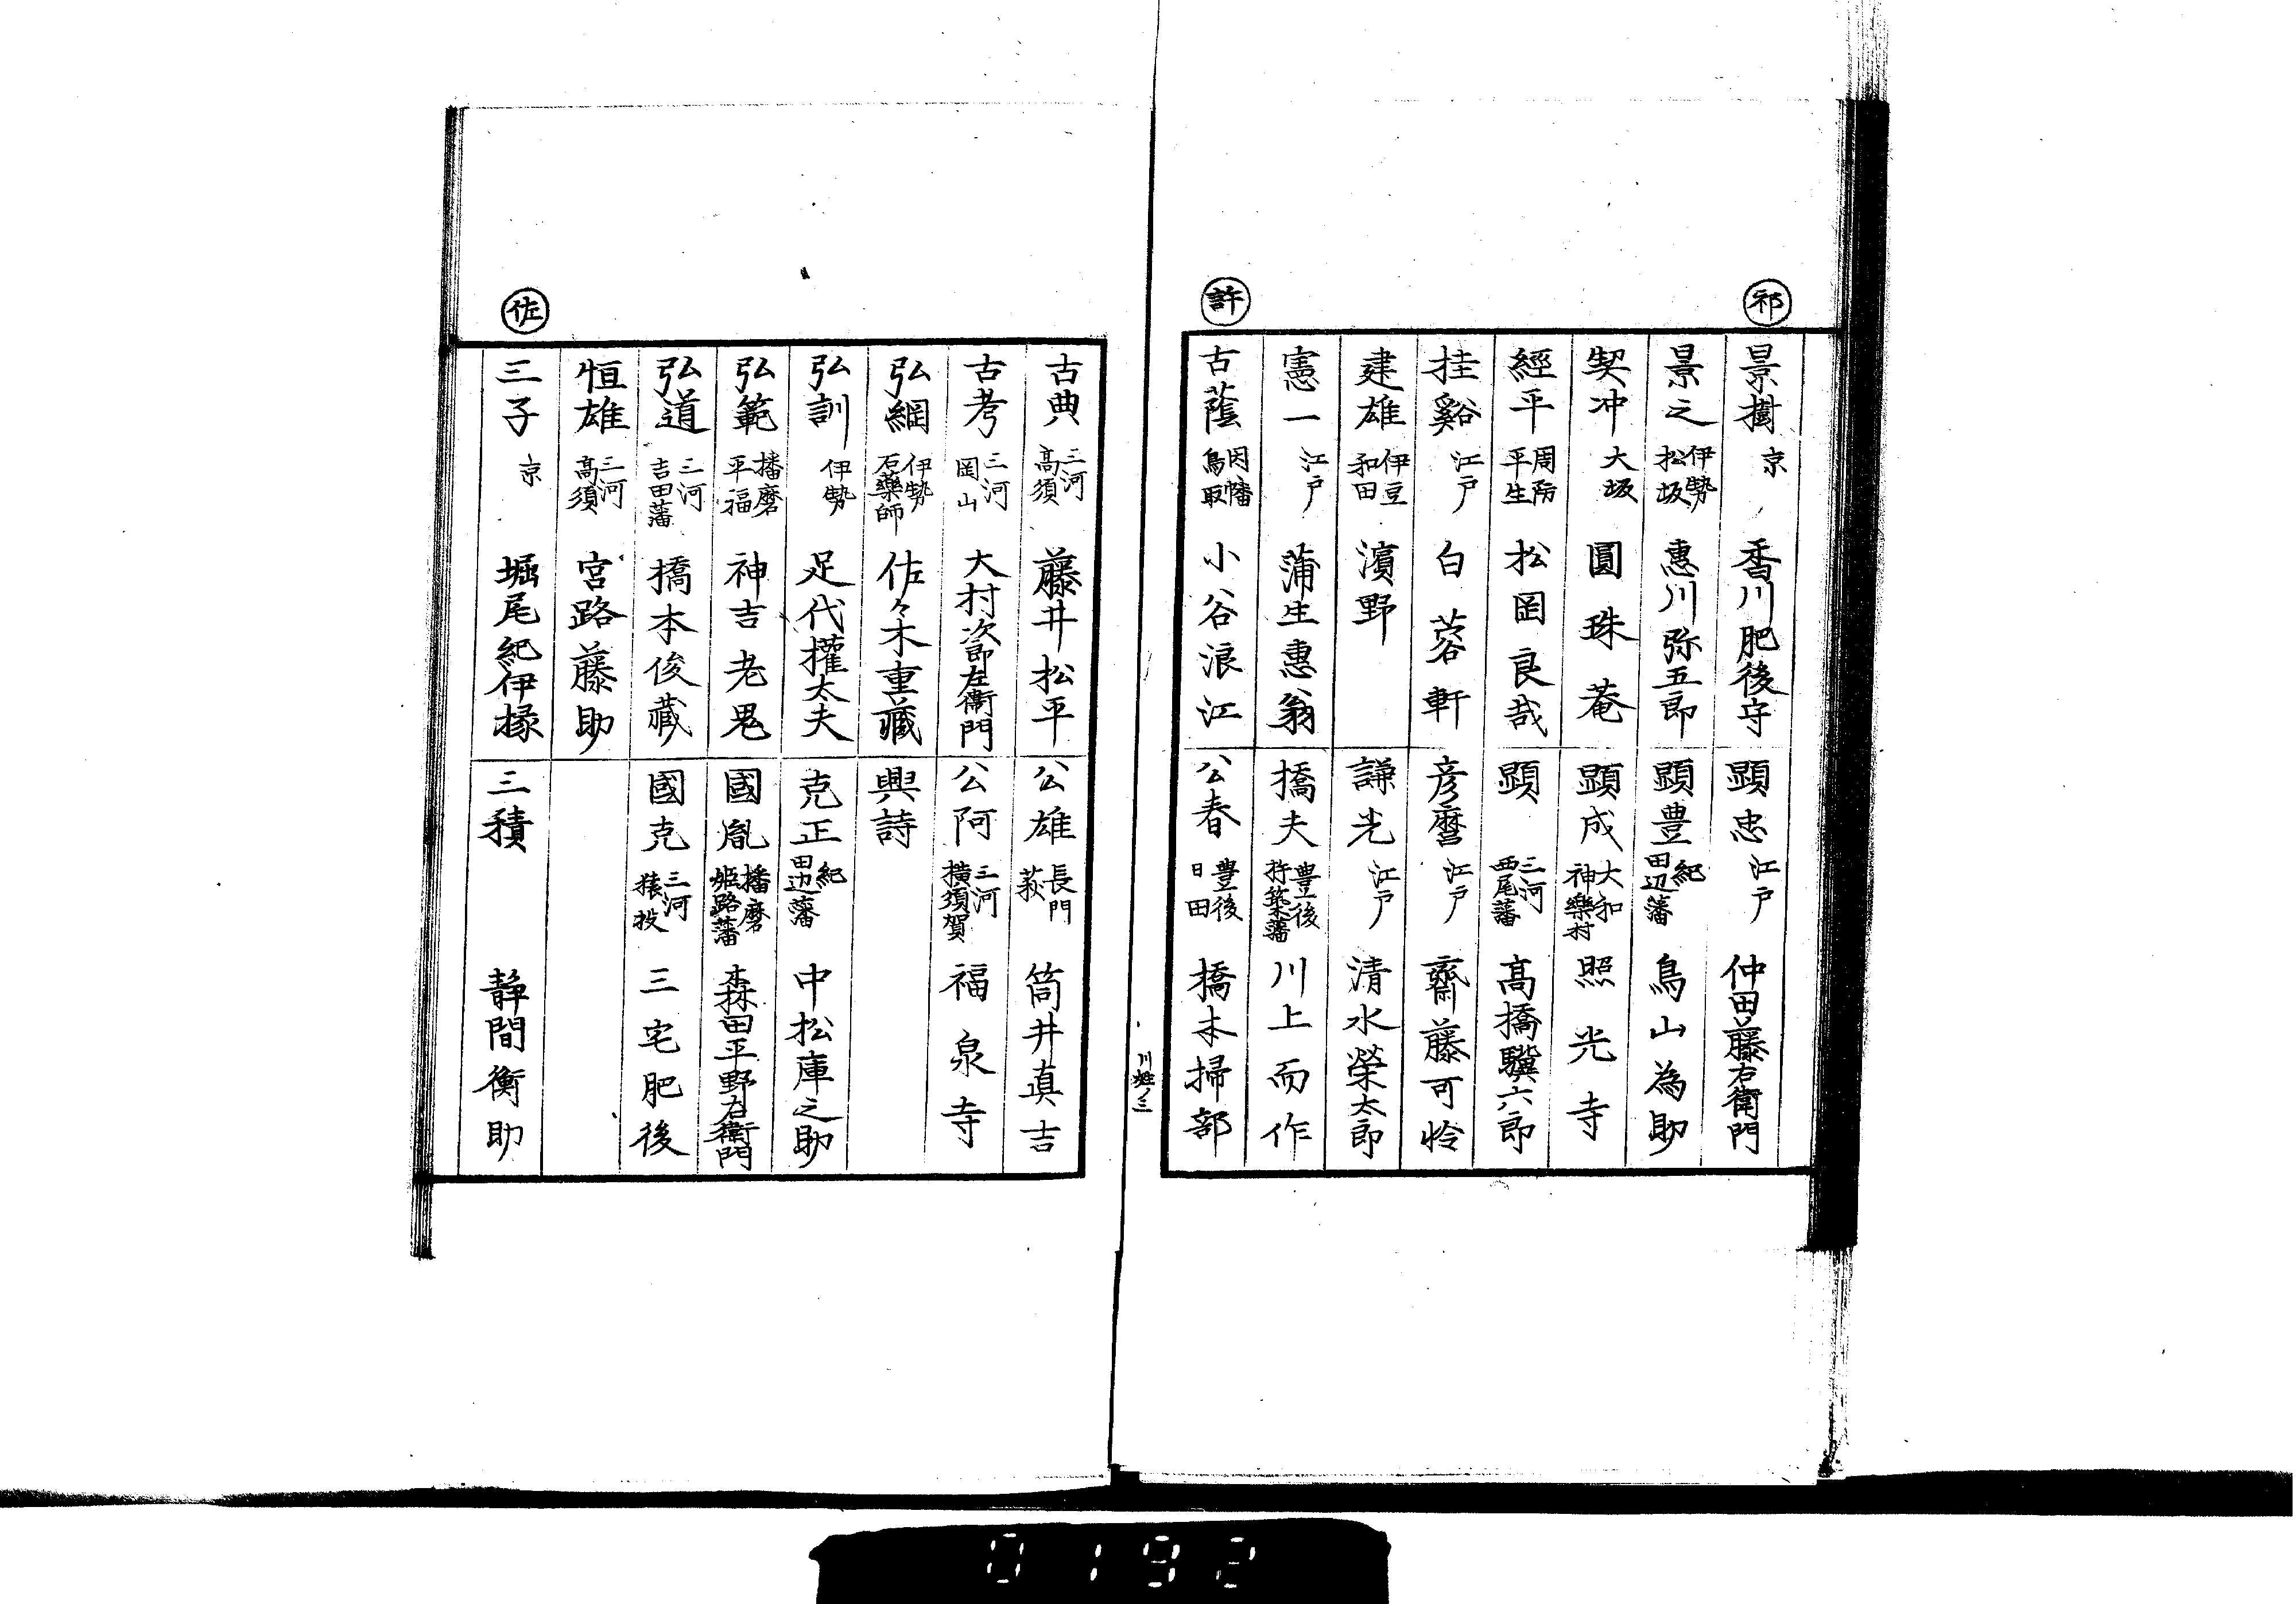 祁
景樹 京 香川肥後守
景之 伊勢松坂 惠川弥五郎
契冲 大坂 圓珠菴
經平 周防平生 松岡良哉
桂谿 江戸 白蓉軒
建雄 伊豆和田 濱野
憲一 江戸 蒲生惠翁
許
古蔭 因幡鳥取 小谷浪江
顕忠 江戸 仲田藤右衛門
顕豊 紀田辺藩 鳥山為助
顕成 大和神樂村 照光寺
顕 三河西尾藩 髙橋驥六郎
彦麿 江戸 齋藤可怜
謙光 江戸 清水榮太郎
橋夫 豊後杵築藩 川上而作
公春 豊後日田 橋本掃部
川姓ノ三
古典 三河高須 藤井松平
古考 三河岡山 大村次郎左衛門
弘綱 伊勢石藥師 佐々木重藏
弘訓 伊勢 足代權太夫
弘範 播磨平福 神吉老鬼
弘道 三河吉田藩 橋本俊藏
恒雄 三河高須 宮路藤助
佐
三子 京 堀尾紀伊掾
公雄 長門萩 筒井真吉
公阿 三河横須賀 福泉寺
興詩
克正 紀田辺藩 中松庫之助
國胤 播磨姫路藩 森田平野右衛門
國克 三河猿投 三宅肥後
三積 静間衡助
0192